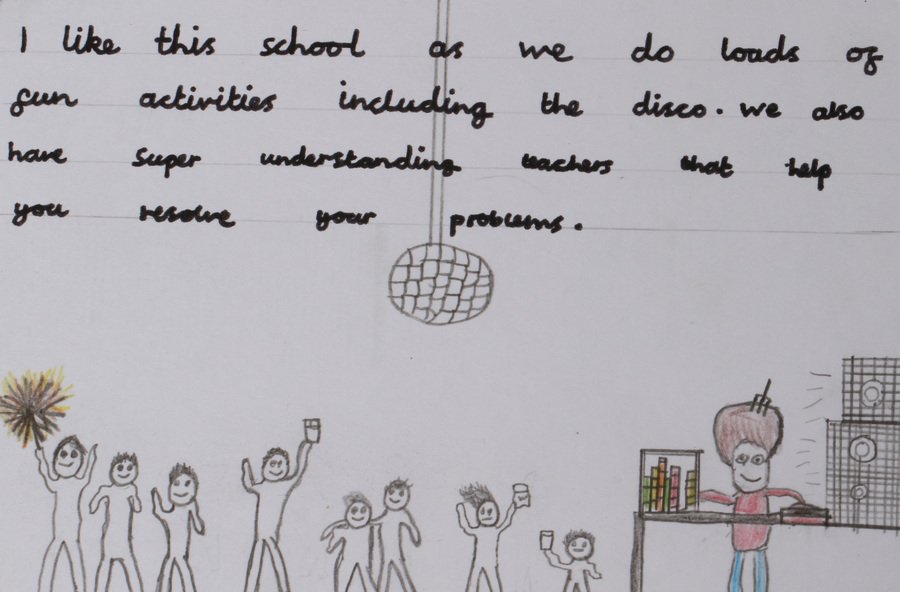 I like this school as we do loads of
fun activities including the disco. we also
have super understanding teachers that help
you resolve your problems.